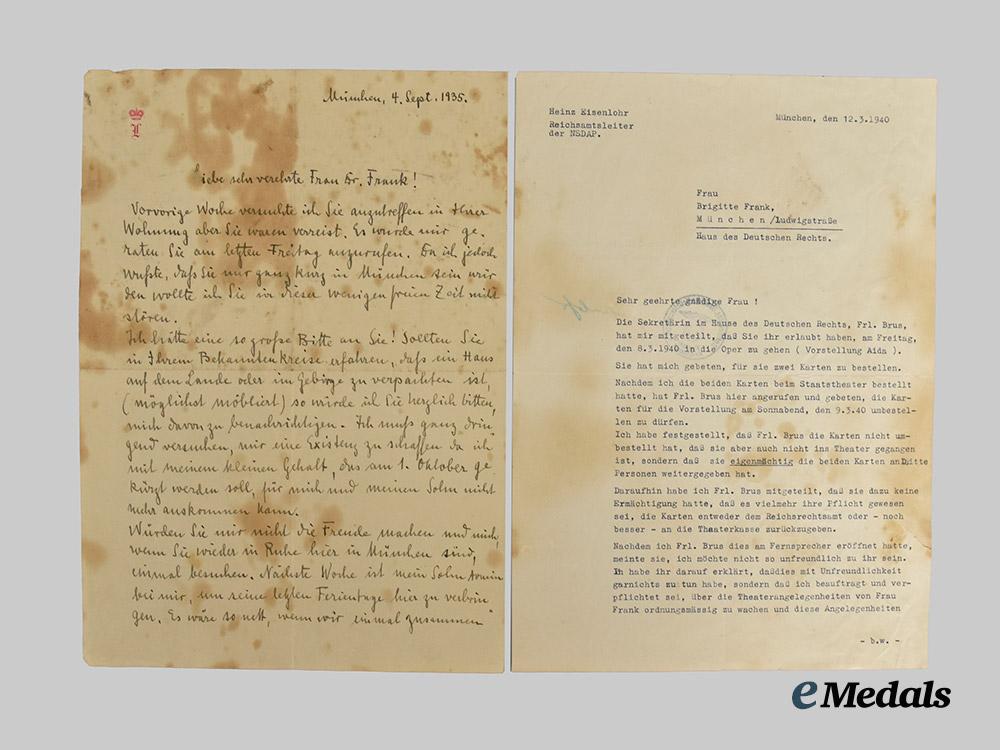 L
München, 4. Sept. 1935.
Liebe sehr verehrte Frau Dr. Frank!
Vorvorige Woche versuchte ich Sie anzutreffen in Ihrer
Wohnung aber Sie waren verreist. Es wurde mir ge-
raten Sie am letzten Freitag anzurufen. Da ich jedoch
wußte, daß Sie nur ganz kurz in München sein wür
den wollte ich Sie in dieser wenigen freien Zeit nicht
stören.
Ich hätte eine so große Bitte an Sie! Sollten Sie
in Ihrem Bekanntenkreise erfahren, daß ein Haus
auf dem Lande oder im Gebirge zu verpachten ist,
(möglichst möbliert) so würde ich Sie herzlich bitten,
mich davon zu benachrichtigen. Ich muß ganz drin
gend versuchen, mir eine Existenz zu schaffen da ich
mit meinem kleinen Gehalt, das am 1. Oktober ge
kürzt werden soll, für mich und meinen Sohn nicht
mehr auskommen kann.
Würden Sie mir nicht die Freude machen und mich,
wenn Sie wieder in Ruhe hier in München sind,
einmal besuchen. Nächste Woche ist mein Sohn Armin
bei mir, um seine letzten Ferientage hier zu verbrin
gen. Es wäre so nett, wenn wir einmal zusammen
Heinz Eisenlohr
Reichsamtsleiter
der NSDAP.
München, den 12.3.1940
Frau
Brigitte Frank,
München/Ludwigstraße
Haus des Deutschen Rechts.
Sehr geehrte gnädige Frau !
Die Sekretärin im Hause des Deutschen Rechts, Frl. Brus,
hat mir mitgeteilt, daß Sie ihr erlaubt haben, am Freitag,
den 8.3.1940 in die Oper zu gehen ( Vorstellung Aida ).
Sie hat mich gebeten, für sie zwei Karten zu bestellen.
Nachdem ich die beiden Karten beim Staatstheater bestellt
hatte, hat Frl. Brus hier angerufen und gebeten, die Kar-
ten für die Vorstellung am Sonnabend, den 9.3.40 umbestel-
len zu dürfen.
Ich habe festgestellt, daß Frl. Brus die Karten nicht um-
bestellt hat, daß sie aber auch nicht ins Theater gegangen
ist, sondern daß sie eigenmächtig die beiden Karten an Dritte
Personen weitergegeben hat.
Daraufhin habe ich Frl. Brus mitgeteilt, daß sie dazu keine
Ermächtigung hatte, daß es vielmehr ihre Pflicht gewesen
sei, die Karten entweder dem Reichsrechtsamt oder - noch
besser - an die Theaterkasse zurückzugeben.
Nachdem ich Frl. Brus dies am Fernsprecher eröffnet hatte,
meinte sie, ich möchte nicht so unfreundlich zu ihr sein.
Ih habe ihr darauf erklärt, daßdies mit Unfreundlichkeit
garnichts zu tun habe, sondern daß ich beauftragt und ver-
pflichtet sei, über die Theaterangelegenheiten von Frau
Frank ordnungsmässig zu wachen und diese Angelegenheiten
- b.w. -
eMedals